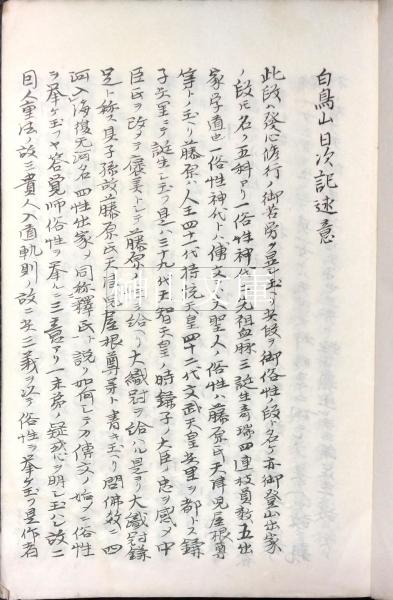 白鳥山日次記述意
此段ハ發心修行ノ御苦労ヲ顕シ玉フ初段ヲ御俗性ノ段ト名ケ亦御登山出家
ノ段ト名ク五科アリ俗性神代先祖血脉三誕生奇瑞四連枝員数五出
家学道也一俗性神代トハ傳文ニ夫聖人ノ俗性ハ藤原氏天津児屋根尊
等トノ玉ヘリ藤原ハ人王四十一代持統天皇四十二代文武天皇
子 誕生シ玉フ是ハ三十九代天智天皇ノ時鎌子ノ大臣ノ忠ヲ感メ中
臣氏ヲ改メテ褒美トシテ藤原ノ 給ヘリ大織冠ヲ給ハル是ヲ大織冠鎌
足ト称ス其子孫故藤原氏天津児屋根尊等ト書キ玉ヘリ問佛教ニ四
河入海復无河名四性出家メ同称釋氏ト説ク如何シテカ傳文ノ始メニ俗性
ヲ挙ケ玉フヤ答覚師俗性ヲ挙ルニ三意アリ一末弟ノ疑惑ヲ明シ玉ハン故二
因人重法ノ故三貴人入道軌則ノ故ニ此三義ヲ以テ俗性ヲ挙ケ玉フ是作者